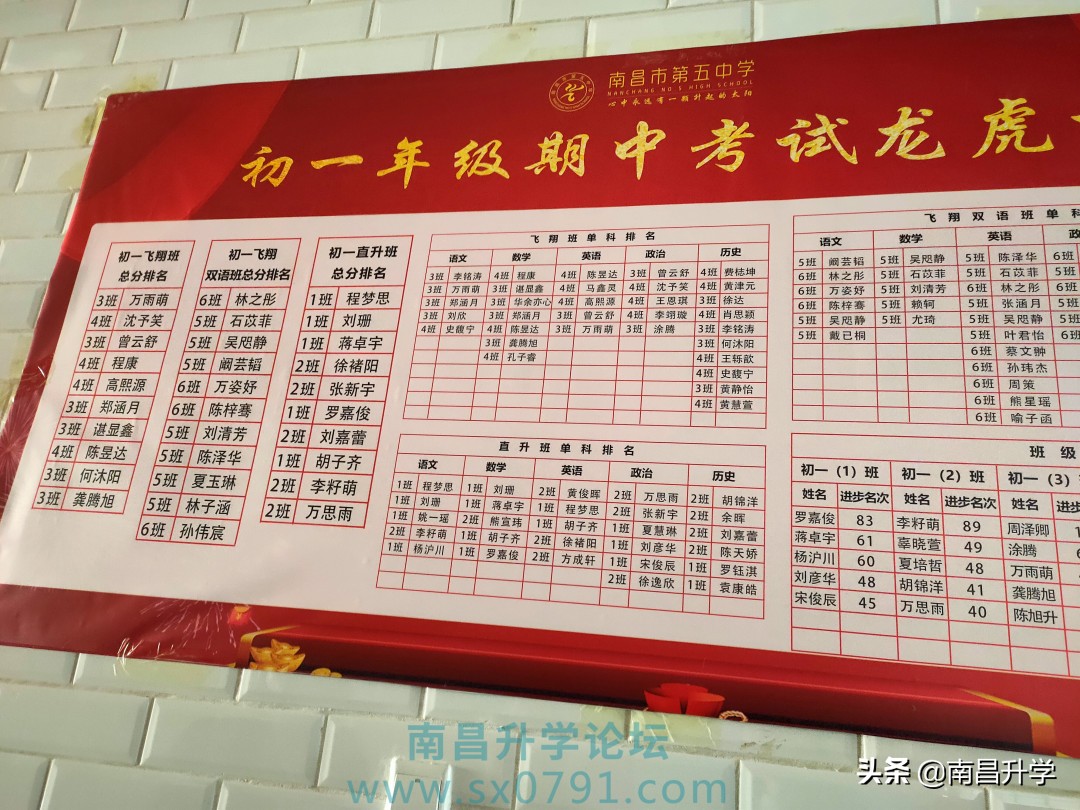 南昌市第五中学
NANCHANG NO 5 HIGH SCHOOL
心中永远有一颗升起的太阳
初一年级期中考试龙虎
初一飞翔班
总分排名
3班 万雨萌
4班 沈予笑
3班 曾云舒
4班 程康
4班 高熙源
3班 郑涵月
3班 谌显鑫
4班 陈昱达
3班 何沐阳
3班 龚腾旭
初一飞翔
双语班总分排名
6班 林之彤
5班 石苡菲
5班 吴咫静
5班 阚芸韬
6班 万姿妤
6班 陈梓骞
5班 刘清芳
5班 陈泽华
5班 夏玉琳
5班 林子涵
6班 孙伟宸
初一直升班
总分排名
1班 程梦思
1班 刘珊
1班 蒋卓宇
2班 徐褚阳
2班 张新宇
1班 罗嘉俊
2班 刘嘉蕾
1班 胡子齐
2班 李籽萌
2班 万思雨
飞翔班单科排名
语文 数学 英语 政治 历史
3班 李铭涛 4班 程康 4班 陈昱达 3班 曾云舒 4班 费梽坤
3班 万雨萌 3班 谌显鑫 4班 马鑫灵 4班 沈予笑 4班 黄津元
3班 郑涵月 3班 华余亦心 4班 高熙源 4班 王恩琪 3班 徐达
3班 刘欣 3班 郑涵月 3班 曾云舒 4班 李翊璇 4班 肖思颖
4班 史馥宁 4班 陈昱达 3班 万雨萌 3班 涂腾 3班 李铭涛
3班 龚腾旭 3班 何沐阳
4班 孔子睿 4班 王轹歆
4班 史馥宁
3班 黄静怡
4班 黄慧萱
直升班单科排名
语文 数学 英语 政治 历史
1班 程梦思 1班 刘珊 2班 黄俊晖 2班 万思雨 2班 胡锦洋
1班 刘珊 1班 蒋卓宇 1班 程梦思 2班 张新宇 2班 余晖
1班 姚一瑶 2班 熊宣玮 1班 胡子齐 1班 夏慧琳 2班 刘嘉蕾
2班 李籽萌 1班 胡子齐 2班 徐褚阳 1班 刘彦华 2班 陈天娇
1班 杨沪川 1班 罗嘉俊 2班 方成轩 1班 宋俊辰 1班 罗钰淇
2班 徐逸欣 1班 袁康皓
飞翔双语班单科
语文 数学 英语
5班 阚芸韬 5班 吴咫静 5班 陈泽华 6班
6班 林之彤 5班 石苡菲 5班 石苡菲 5班
6班 万姿妤 5班 刘清芳 6班 林之彤 6班
6班 陈梓骞 5班 赖轲 5班 张涵月 5班
5班 吴咫静 5班 尤琦 5班 吴咫静 5班
5班 戴已桐 5班 叶君怡 6班
6班 蔡文翀
6班 孙玮杰
6班 周策
6班 熊星瑶
6班 喻子函
班级
初一（1）班 初一（2）班 初一（3）
姓名 进步名次 姓名 进步名次 姓名 进步
罗嘉俊 83 李籽萌 89 周泽卿
蒋卓宇 61 辜晓萱 49 涂腾
杨沪川 60 夏培哲 48 万雨萌
刘彦华 48 胡锦洋 41 龚腾旭
宋俊辰 45 万思雨 40 陈旭升
南昌升学论坛
www.sx0791.com
头条 @南昌升学